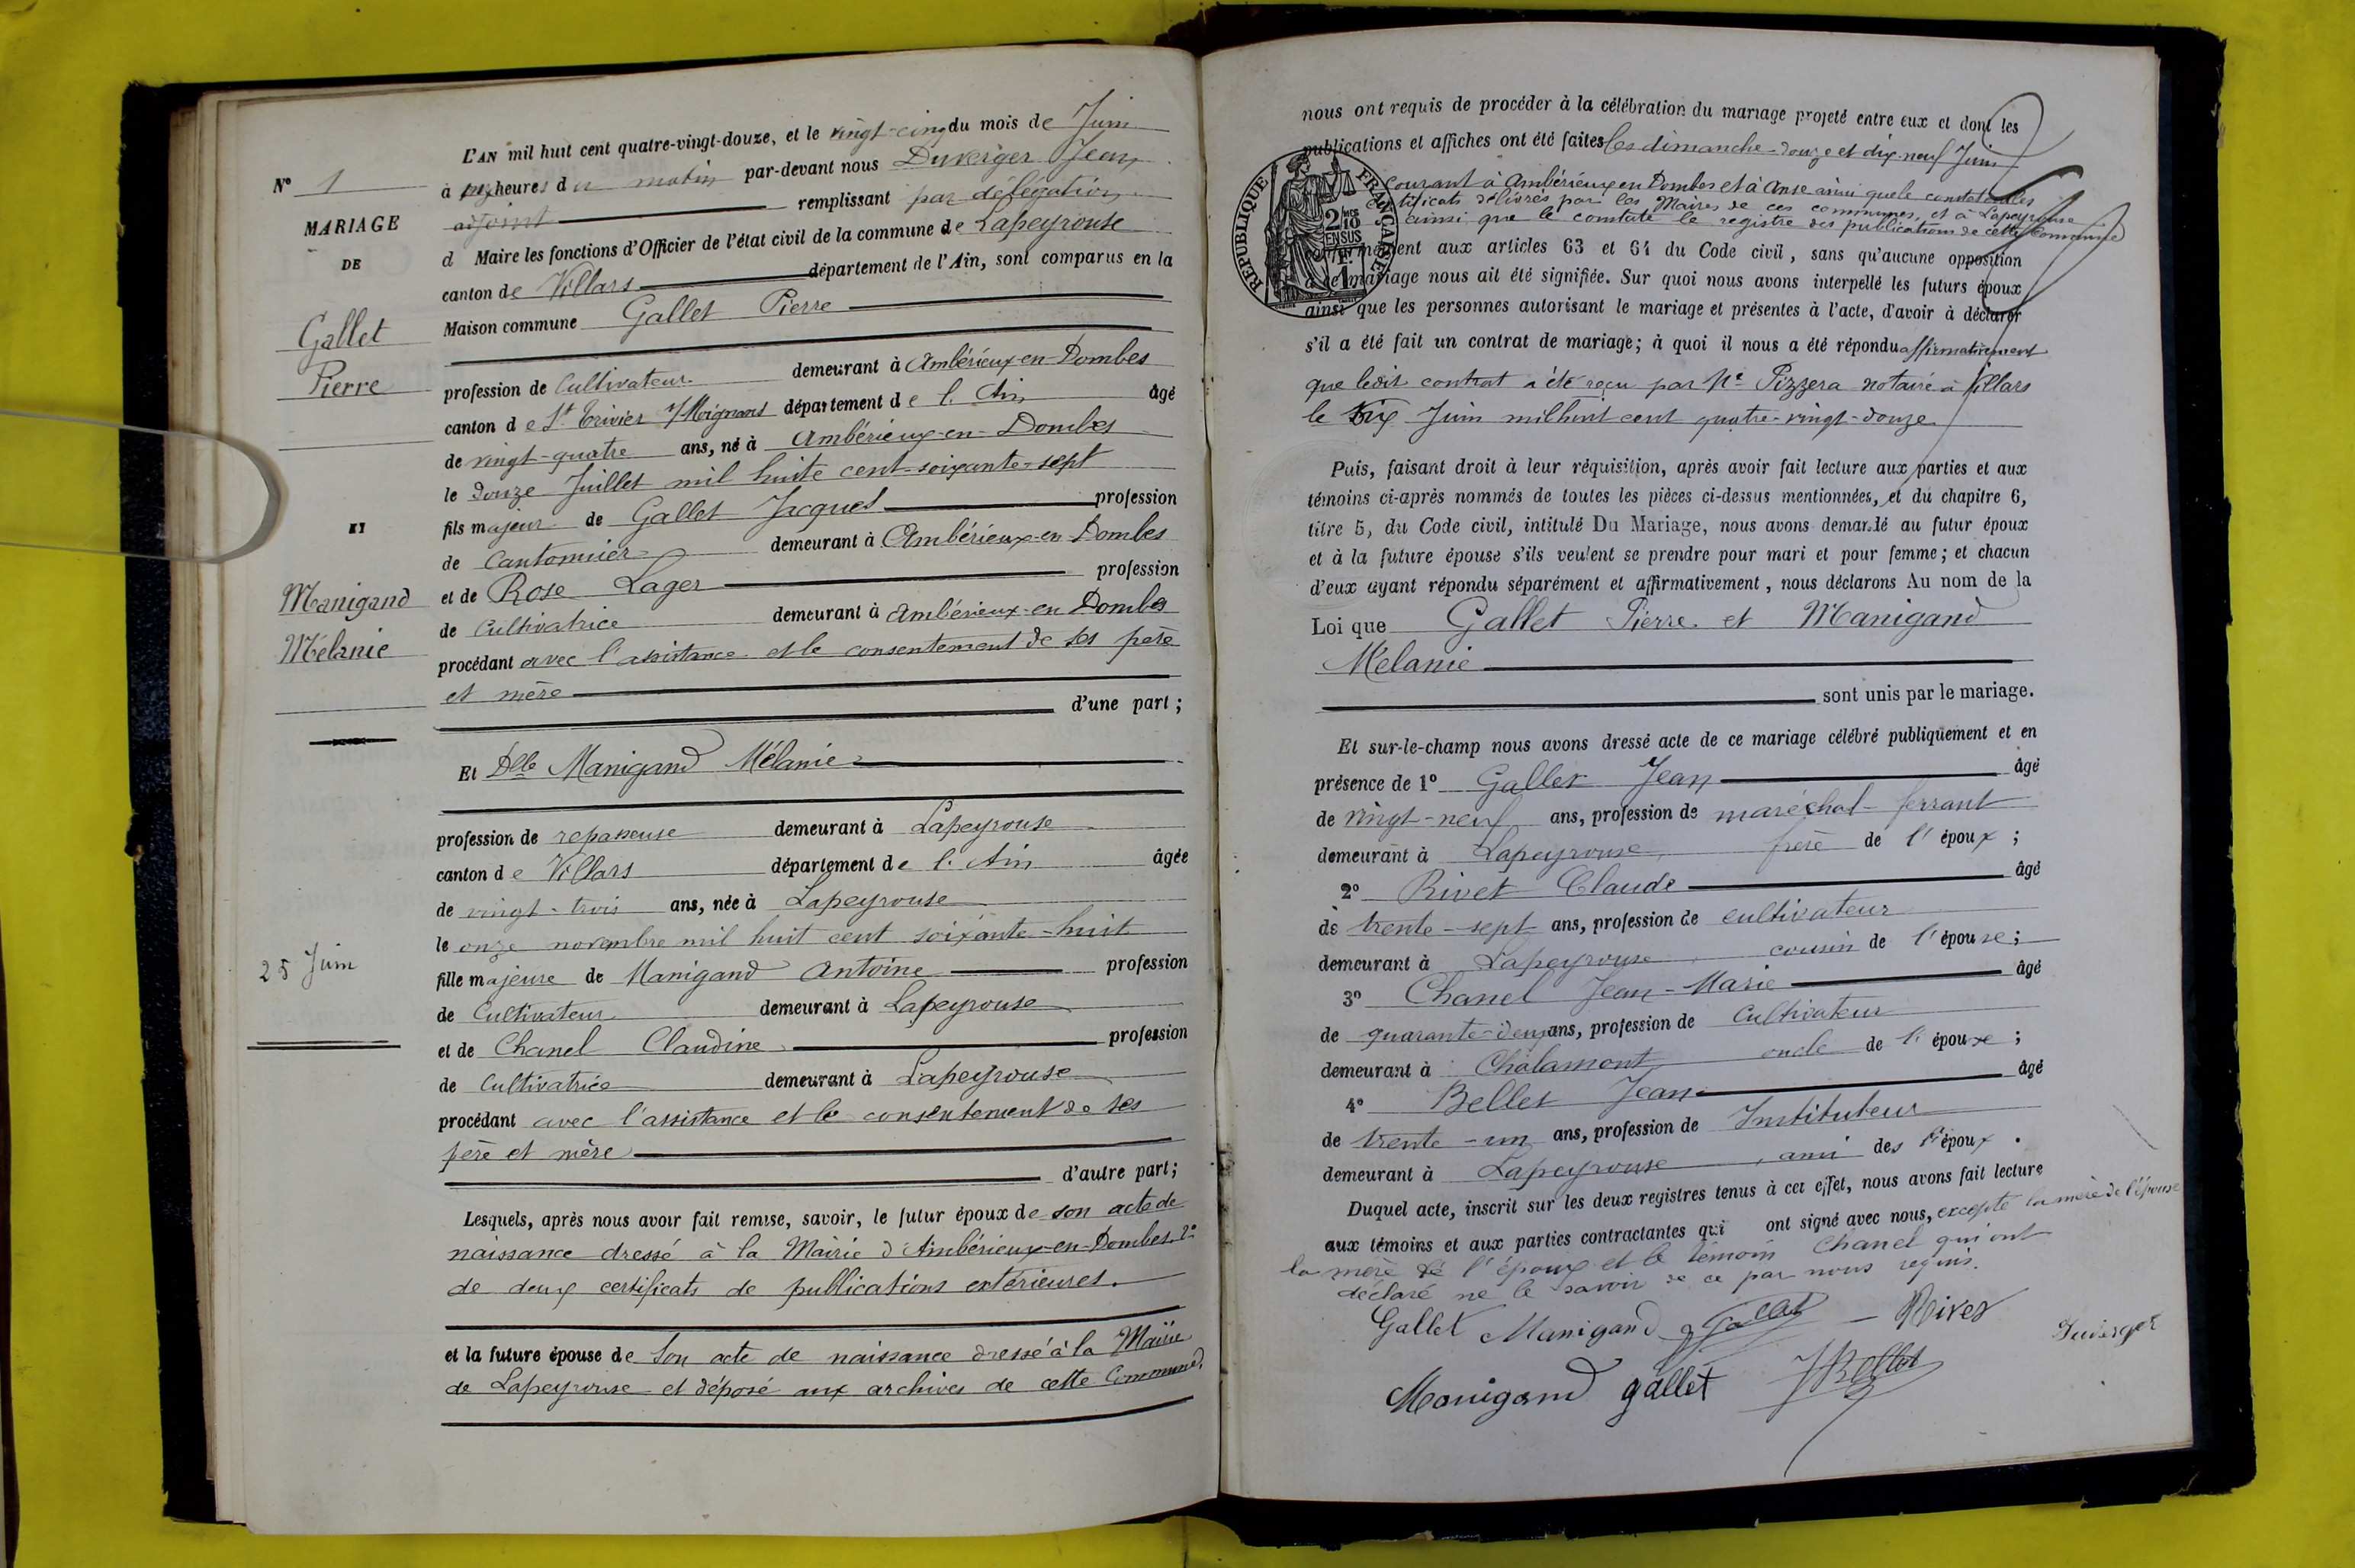 N° 1
MARIAGE
DE
Gallet
Pierre
ET
Manigand
Mélanie
25 Juin
L'AN mil huit cent quatre-vingt-douze, et le vingt-cinq du mois de Juin
à heures du matin par-devant nous Duverger Jean
adjoint remplissant par délégation
d Maire les fonctions d'Officier de l'état civil de la commune de Lapeyrouse
canton de Villars département de l'Ain, sont comparus en la
Maison commune Gallet Pierre
profession de Cultivateur demeurant à Ambérieux-en-Dombes
canton de St Trivier s/Moignans département de l'Ain âgé
de vingt-quatre ans, né à Ambérieux-en-Dombes
le douze Juillet mil huite cent-soixante-sept
fils majeur de Gallet Jacques profession
de Cantonnier demeurant à Ambérieux-en-Dombes
et de Rose Lager profession
de Cultivatrice demeurant à Ambérieux-en Dombes
procédant avec l'assistance et le consentement de ses père
et mère
d'une part ;
Et Dlle Manigand Mélanie
profession de repasseuse demeurant à Lapeyrouse
canton de Villars département de l'Ain âgée
de vingt-trois ans, née à Lapeyrouse
le onze novembre mil huit cent soixante-huit
fille majeure de Manigand Antoine profession
de Cultivateur demeurant à Lapeyrouse
et de Chanel Claudine profession
de Cultivatrice demeurant à Lapeyrouse
procédant avec l'assistance et le consentement de ses
père et mère
d'autre part ;
Lesquels, après nous avoir fait remise, savoir, le futur époux de son acte de
naissance dressé à la Mairie d'Ambérieux-en-Dombes 2°
de deux certificats de publications extérieures.
et la future épouse de Son acte de naissance dressé à la Mairie
de Lapeyrouse et déposé aux archives de cette Commune.
nous ont requis de procéder à la célébration du mariage projeté entre eux et dont les
publications et affiches ont été faites les dimanche douze et dix-neuf Juin
courant à Ambérieux en Dombes et à Anse ainsi que le constate les
certificats délivrés par les Maires de ces communes, et à Lapeyrouse
ainsi que le constate le registre des publications de cette Commune
RÉPUBLIQUE FRANÇAISE
conformément aux articles 63 et 64 du Code civil, sans qu'aucune opposition
à ce mariage nous ait été signifiée. Sur quoi nous avons interpellé les futurs époux
ainsi que les personnes autorisant le mariage et présentes à l'acte, d'avoir à déclarer
s'il a été fait un contrat de mariage; à quoi il nous a été répondu affirmativement
que ledit contrat a été reçu par Me Pizzera notaire à Villars
le dix Juin mil huit cent quatre-vingt-douze
Puis, faisant droit à leur réquisition, après avoir fait lecture aux parties et aux
témoins ci-après nommés de toutes les pièces ci-dessus mentionnées, et du chapitre 6,
titre 5, du Code civil, intitulé Du Mariage, nous avons demandé au futur époux
et à la future épouse s'ils veulent se prendre pour mari et pour femme; et chacun
d'eux ayant répondu séparément et affirmativement, nous déclarons Au nom de la
Loi que Gallet Pierre et Manigand
Mélanie
sont unis par le mariage.
Et sur-le-champ nous avons dressé acte de ce mariage célébré publiquement et en
présence de 1° Gallet Jean âgé
de vingt-neuf ans, profession de maréchal-ferrant
demeurant à Lapeyrouse, frère de l'époux ;
2° Rivet Claude âgé
de trente-sept ans, profession de cultivateur
demeurant à Lapeyrouse, cousin de l'épouse ;
3° Chanel Jean-Marie âgé
de quarante-deux ans, profession de Cultivateur
demeurant à Chalamont oncle de l'épouse ;
4° Bellet Jean âgé
de trente-un ans, profession de Instituteur
demeurant à Lapeyrouse, ami des époux .
Duquel acte, inscrit sur les deux registres tenus à cet effet, nous avons fait lecture
aux témoins et aux parties contractantes qui ont signé avec nous, excepté la mère de l'épouse
la mère de l'époux et le témoin Chanel qui ont
déclaré ne le savoir de ce par nous requis.
Gallet Manigand Gallet Rivet
Duverger
Manigand gallet JBellet